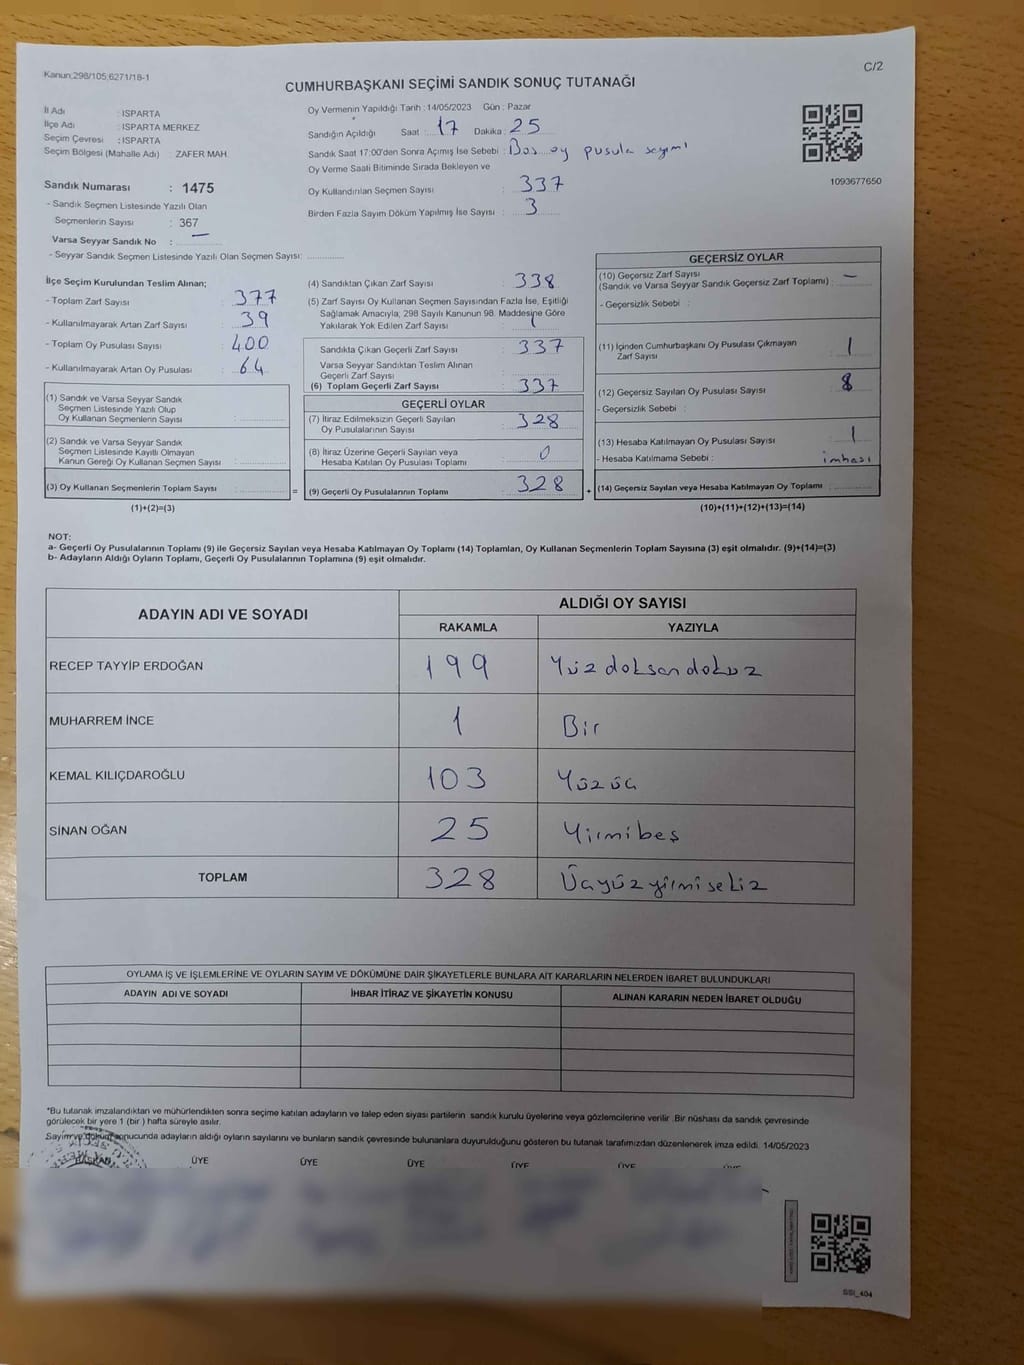 Kanun;298/105;6271/18-1
C/2
CUMHURBAŞKANI SEÇİMİ SANDIK SONUÇ TUTANAĞI
İl Adı : ISPARTA
İlçe Adı : ISPARTA MERKEZ
Seçim Çevresi : ISPARTA
Seçim Bölgesi (Mahalle Adı) : ZAFER MAH.
Sandık Numarası : 1475
- Sandık Seçmen Listesinde Yazılı Olan
Seçmenlerin Sayısı : 367
Varsa Seyyar Sandık No : —
- Seyyar Sandık Seçmen Listesinde Yazılı Olan Seçmen Sayısı: ............
Oy Vermenin Yapıldığı Tarih : 14/05/2023 Gün : Pazar
Sandığın Açıldığı Saat : 17 Dakika : 25
Sandık Saat 17:00'den Sonra Açımış İse Sebebi : Boş oy pusula sayımı
Oy Verme Saati Bitiminde Sırada Bekleyen ve
Oy Kullandırılan Seçmen Sayısı : 337
Birden Fazla Sayım Döküm Yapılmış İse Sayısı : 3
1093677650
İlçe Seçim Kurulundan Teslim Alınan;
- Toplam Zarf Sayısı : 377
- Kullanılmayarak Artan Zarf Sayısı : 39
- Toplam Oy Pusulası Sayısı : 400
- Kullanılmayarak Artan Oy Pusulası : 64
(1) Sandık ve Varsa Seyyar Sandık
Seçmen Listesinde Yazılı Olup
Oy Kullanan Seçmenlerin Sayısı :
(2) Sandık ve Varsa Seyyar Sandık
Seçmen Listesinde Kayıtlı Olmayan
Kanun Gereği Oy Kullanan Seçmen Sayısı :
(3) Oy Kullanan Seçmenlerin Toplam Sayısı :
(1)+(2)=(3)
=
(4) Sandıktan Çıkan Zarf Sayısı : 338
(5) Zarf Sayısı Oy Kullanan Seçmen Sayısından Fazla İse, Eşitliği
Sağlamak Amacıyla, 298 Sayılı Kanunun 98. Maddesine Göre
Yakılarak Yok Edilen Zarf Sayısı : 1
Sandıkta Çıkan Geçerli Zarf Sayısı : 337
Varsa Seyyar Sandıktan Teslim Alınan
Geçerli Zarf Sayısı :
(6) Toplam Geçerli Zarf Sayısı : 337
GEÇERLİ OYLAR
(7) İtiraz Edilmeksizin Geçerli Sayılan
Oy Pusulalarının Sayısı : 328
(8) İtiraz Üzerine Geçerli Sayılan veya
Hesaba Katılan Oy Pusulası Toplamı : 0
(9) Geçerli Oy Pusulalarının Toplamı : 328
+
GEÇERSİZ OYLAR
(10) Geçersiz Zarf Sayısı
(Sandık ve Varsa Seyyar Sandık Geçersiz Zarf Toplamı) : —
- Geçersizlik Sebebi :
(11) İçinden Cumhurbaşkanı Oy Pusulası Çıkmayan
Zarf Sayısı : 1
(12) Geçersiz Sayılan Oy Pusulası Sayısı : 8
- Geçersizlik Sebebi :
(13) Hesaba Katılmayan Oy Pusulası Sayısı : 1
- Hesaba Katılmama Sebebi : imhası
(14) Geçersiz Sayılan veya Hesaba Katılmayan Oy Toplamı :
(10)+(11)+(12)+(13)=(14)
NOT:
a- Geçerli Oy Pusulalarının Toplamı (9) ile Geçersiz Sayılan veya Hesaba Katılmayan Oy Toplamı (14) Toplamları, Oy Kullanan Seçmenlerin Toplam Sayısına (3) eşit olmalıdır. (9)+(14)=(3)
b- Adayların Aldığı Oyların Toplamı, Geçerli Oy Pusulalarının Toplamına (9) eşit olmalıdır.
ADAYIN ADI VE SOYADI ALDIĞI OY SAYISI
RAKAMLA YAZIYLA
RECEP TAYYİP ERDOĞAN 199 Yüz doksan dokuz
MUHARREM İNCE 1 Bir
KEMAL KILIÇDAROĞLU 103 Yüzüç
SİNAN OĞAN 25 Yirmibeş
TOPLAM 328 Üçyüzyirmisekiz
OYLAMA İŞ VE İŞLEMLERİNE VE OYLARIN SAYIM VE DÖKÜMÜNE DAİR ŞİKAYETLERLE BUNLARA AİT KARARLARIN NELERDEN İBARET BULUNDUKLARI
ADAYIN ADI VE SOYADI İHBAR İTİRAZ VE ŞİKAYETİN KONUSU ALINAN KARARIN NEDEN İBARET OLDUĞU
*Bu tutanak imzalandıktan ve mühürlendikten sonra seçime katılan adayların ve talep eden siyasi partilerin sandık kurulu üyelerine veya gözlemcilerine verilir .Bir nüshası da sandık çevresinde
görülecek bir yere 1 (bir ) hafta süreyle asılır.
Sayım ve döküm sonucunda adayların aldığı oyların sayılarını ve bunların sandık çevresinde bulunanlara duyurulduğunu gösteren bu tutanak tarafımızdan düzenlenerek imza edildi. 14/05/2023
BAŞKAN ÜYE ÜYE ÜYE ÜYE ÜYE
SSI_404